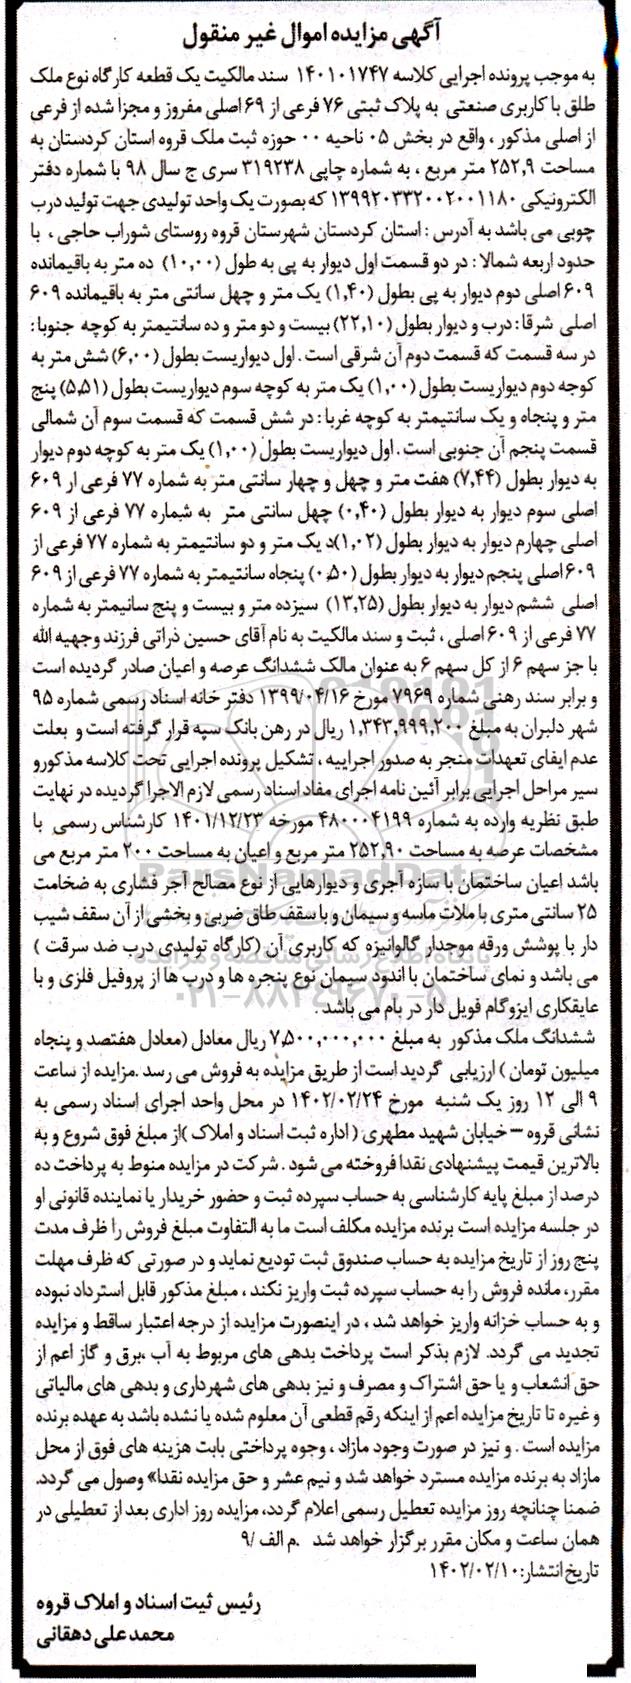 آگهی مزایده اموال غیر منقول
به موجب پرونده اجرایی کلاسه ۱۴۰۱۰۱۷۴۷ سند مالکیت یک قطعه کارگاه نوع ملک
طلق با کاربری صنعتی به پلاک ثبتی ۷۶ فرعی از ۶۹ اصلی مفروز و مجزا شده از فرعی
از اصلی مذکور ، واقع در بخش ۰۵ ناحیه ۰۰ حوزه ثبت ملک قروه استان کردستان به
مساحت ۲۵۲,۹ متر مربع ، به شماره چاپی ۳۱۹۲۳۸ سری ج سال ۹۸ با شماره دفتر
الکترونیکی ۱۳۹۹۲۰۳۳۲۰۰۲۰۰۱۱۸۰ که بصورت یک واحد تولیدی جهت تولید درب
چوبی می باشد به آدرس : استان کردستان شهرستان قروه روستای شوراب حاجی ، با
حدود اربعه شمالا : در دو قسمت اول دیوار به پی به طول (۱۰,۰۰) ده متر به باقیمانده
۶۰۹ اصلی دوم دیوار به پی بطول (۱,۴۰) یک متر و چهل سانتی متر به باقیمانده ۶۰۹
اصلی شرقا : درب و دیوار بطول (۲۲,۱۰) بیست و دو متر و ده سانتیمتر به کوچه جنوبا :
در سه قسمت که قسمت دوم آن شرقی است . اول دیواریست بطول (۶,۰۰) شش متر به
کوچه دوم دیواریست بطول (۱,۰۰) یک متر به کوچه سوم دیواریست بطول (۵,۵۱) پنج
متر و پنجاه و یک سانتیمتر به کوچه غربا : در شش قسمت که قسمت سوم آن شمالی
قسمت پنجم آن جنوبی است . اول دیواریست بطول (۱,۰۰) یک متر به کوچه دوم دیوار
به دیوار بطول (۷,۴۴) هفت متر و چهل و چهار سانتی متر به شماره ۷۷ فرعی از ۶۰۹
اصلی سوم دیوار به دیوار بطول (۰,۴۰) چهل سانتی متر به شماره ۷۷ فرعی از ۶۰۹
اصلی چهارم دیوار به دیوار بطول (۱,۰۲)د یک متر و دو سانتیمتر به شماره ۷۷ فرعی از
۶۰۹ اصلی پنجم دیوار به دیوار بطول (۰,۵۰) پنجاه سانتیمتر به شماره ۷۷ فرعی از ۶۰۹
اصلی ششم دیوار به دیوار بطول (۱۳,۲۵) سیزده متر و بیست و پنج سانیمتر به شماره
۷۷ فرعی از ۶۰۹ اصلی ، ثبت و سند مالکیت به نام آقای حسین ذراتی فرزند وجهیه الله
با جز سهم ۶ از کل سهم ۶ به عنوان مالک ششدانگ عرصه و اعیان صادر گردیده است
و برابر سند رهنی شماره ۷۹۶۹ مورخ ۱۳۹۹/۰۴/۱۶ دفتر خانه اسناد رسمی شماره ۹۵
شهر دلبران به مبلغ ۱,۳۴۳,۹۹۹,۲۰۰ ریال در رهن بانک سپه قرار گرفته است و بعلت
عدم ایفای تعهدات منجر به صدور اجراییه ، تشکیل پرونده اجرایی تحت کلاسه مذکورو
سیر مراحل اجرایی برابر آئین نامه اجرای مفاد اسناد رسمی لازم الاجرا گردیده در نهایت
طبق نظریه وارده به شماره ۴۸۰۰۰۴۱۹۹ مورخه ۱۴۰۱/۱۲/۲۳ کارشناس رسمی با
مشخصات عرصه به مساحت ۲۵۲,۹۰ متر مربع و اعیان به مساحت ۲۰۰ متر مربع می
باشد اعیان ساختمان با سازه آجری و دیوارهایی از نوع مصالح آجر فشاری به ضخامت
۲۵ سانتی متری با ملات ماسه و سیمان و با سقف طاق ضربی و بخشی از آن سقف شیب
دار با پوشش ورقه موجدار گالوانیزه که کاربری آن (کارگاه تولیدی درب ضد سرقت )
می باشد و نمای ساختمان با اندود سیمان نوع پنجره ها و درب ها از پروفیل فلزی و با
عایقکاری ایزوگام فویل دار در بام می باشد .
ششدانگ ملک مذکور به مبلغ ۷,۵۰۰,۰۰۰,۰۰۰ ریال معادل (معادل هفتصد و پنجاه
میلیون تومان ) ارزیابی گردید است از طریق مزایده به فروش می رسد .مزایده از ساعت
۹ الی ۱۲ روز یک شنبه مورخ ۱۴۰۲/۰۲/۲۴ در محل واحد اجرای اسناد رسمی به
نشانی قروه – خیابان شهید مطهری ( اداره ثبت اسناد و املاک )از مبلغ فوق شروع و به
بالاترین قیمت پیشنهادی نقدا فروخته می شود . شرکت در مزایده منوط به پرداخت ده
درصد از مبلغ پایه کارشناسی به حساب سپرده ثبت و حضور خریدار یا نماینده قانونی او
در جلسه مزایده است برنده مزایده مکلف است ما به التفاوت مبلغ فروش را ظرف مدت
پنج روز از تاریخ مزایده به حساب صندوق ثبت تودیع نماید و در صورتی که ظرف مهلت
مقرر، مانده فروش را به حساب سپرده ثبت واریز نکند ، مبلغ مذکور قابل استرداد نبوده
و به حساب خزانه واریز خواهد شد ، در اینصورت مزایده از درجه اعتبار ساقط و مزایده
تجدید می گردد. لازم بذکر است پرداخت بدهی های مربوط به آب ،برق و گاز اعم از
حق انشعاب و یا حق اشتراک و مصرف و نیز بدهی های شهرداری و بدهی های مالیاتی
و غیره تا تاریخ مزایده اعم از اینکه رقم قطعی آن معلوم شده یا نشده باشد به عهده برنده
مزایده است . و نیز در صورت وجود مازاد ، وجوه پرداختی بابت هزینه های فوق از محل
مازاد به برنده مزایده مسترد خواهد شد و نیم عشر و حق مزایده نقدا» وصول می گردد.
ضمنا چنانچه روز مزایده تعطیل رسمی اعلام گردد، مزایده روز اداری بعد از تعطیلی در
همان ساعت و مکان مقرر برگزار خواهد شد .م الف /۹
تاریخ انتشار: ۱۴۰۲/۰۲/۱۰
رئیس ثبت اسناد و املاک قروه
محمدعلی دهقانی
ParsNamadData
پایگاه اطلاع رسانی مناقصه و مزایده
۰۲۱-۸۸۳۴۹۶۷۰-۵